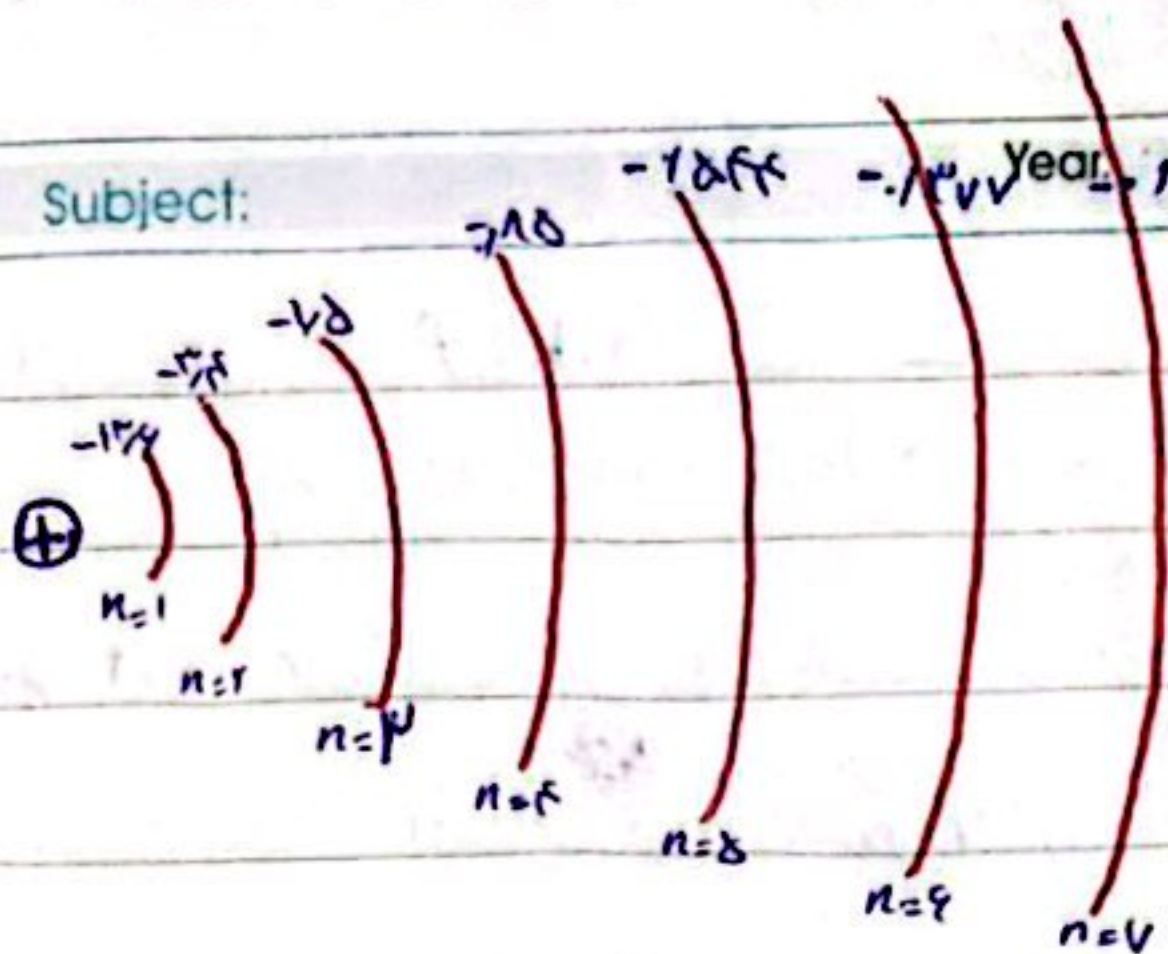 Subject:
Year
-۱۳/۶
-۳/۴
-۷۵
-/۸۵
-/۵۴۴
-۰/۳۷۷
n=۱
n=۲
n=۳
n=۴
n=۵
n=۶
n=۷